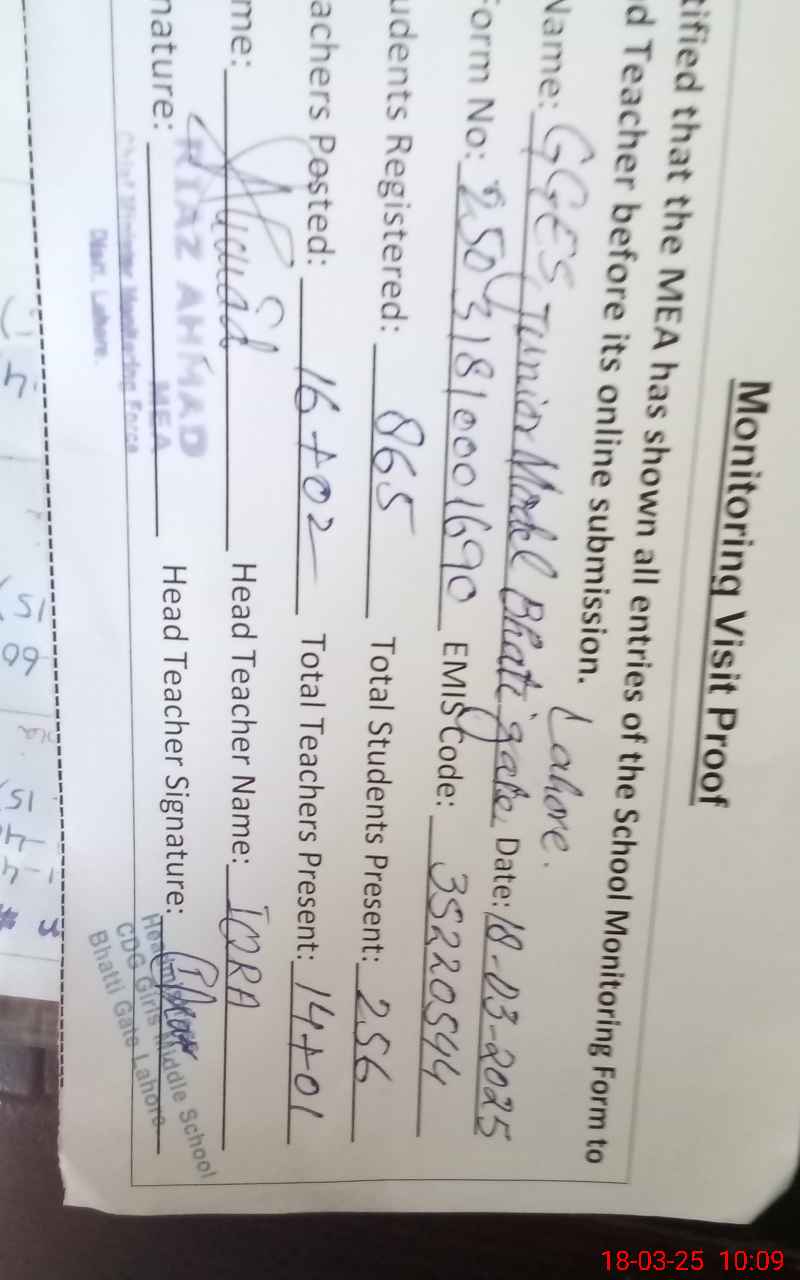 Monitoring Visit Proof
tified that the MEA has shown all entries of the School Monitoring Form to
d Teacher before its online submission.
Lahore.
Name: GGES Junior Model Bhati gate Date: 18-03-2025
Form No: 25031810001690 EMIS Code: 35220544
udents Registered: 865 Total Students Present: 256
achers Posted: 16+02 Total Teachers Present: 14+01
me: Head Teacher Name: IQRA
nature: Head Teacher Signature:
RIAZ AHMAD
MEA
Chief Minister Monitoring Force
Distt. Lahore.
CDG Girls Middle School
Bhatti Gate Lahore
18-03-25 10:09